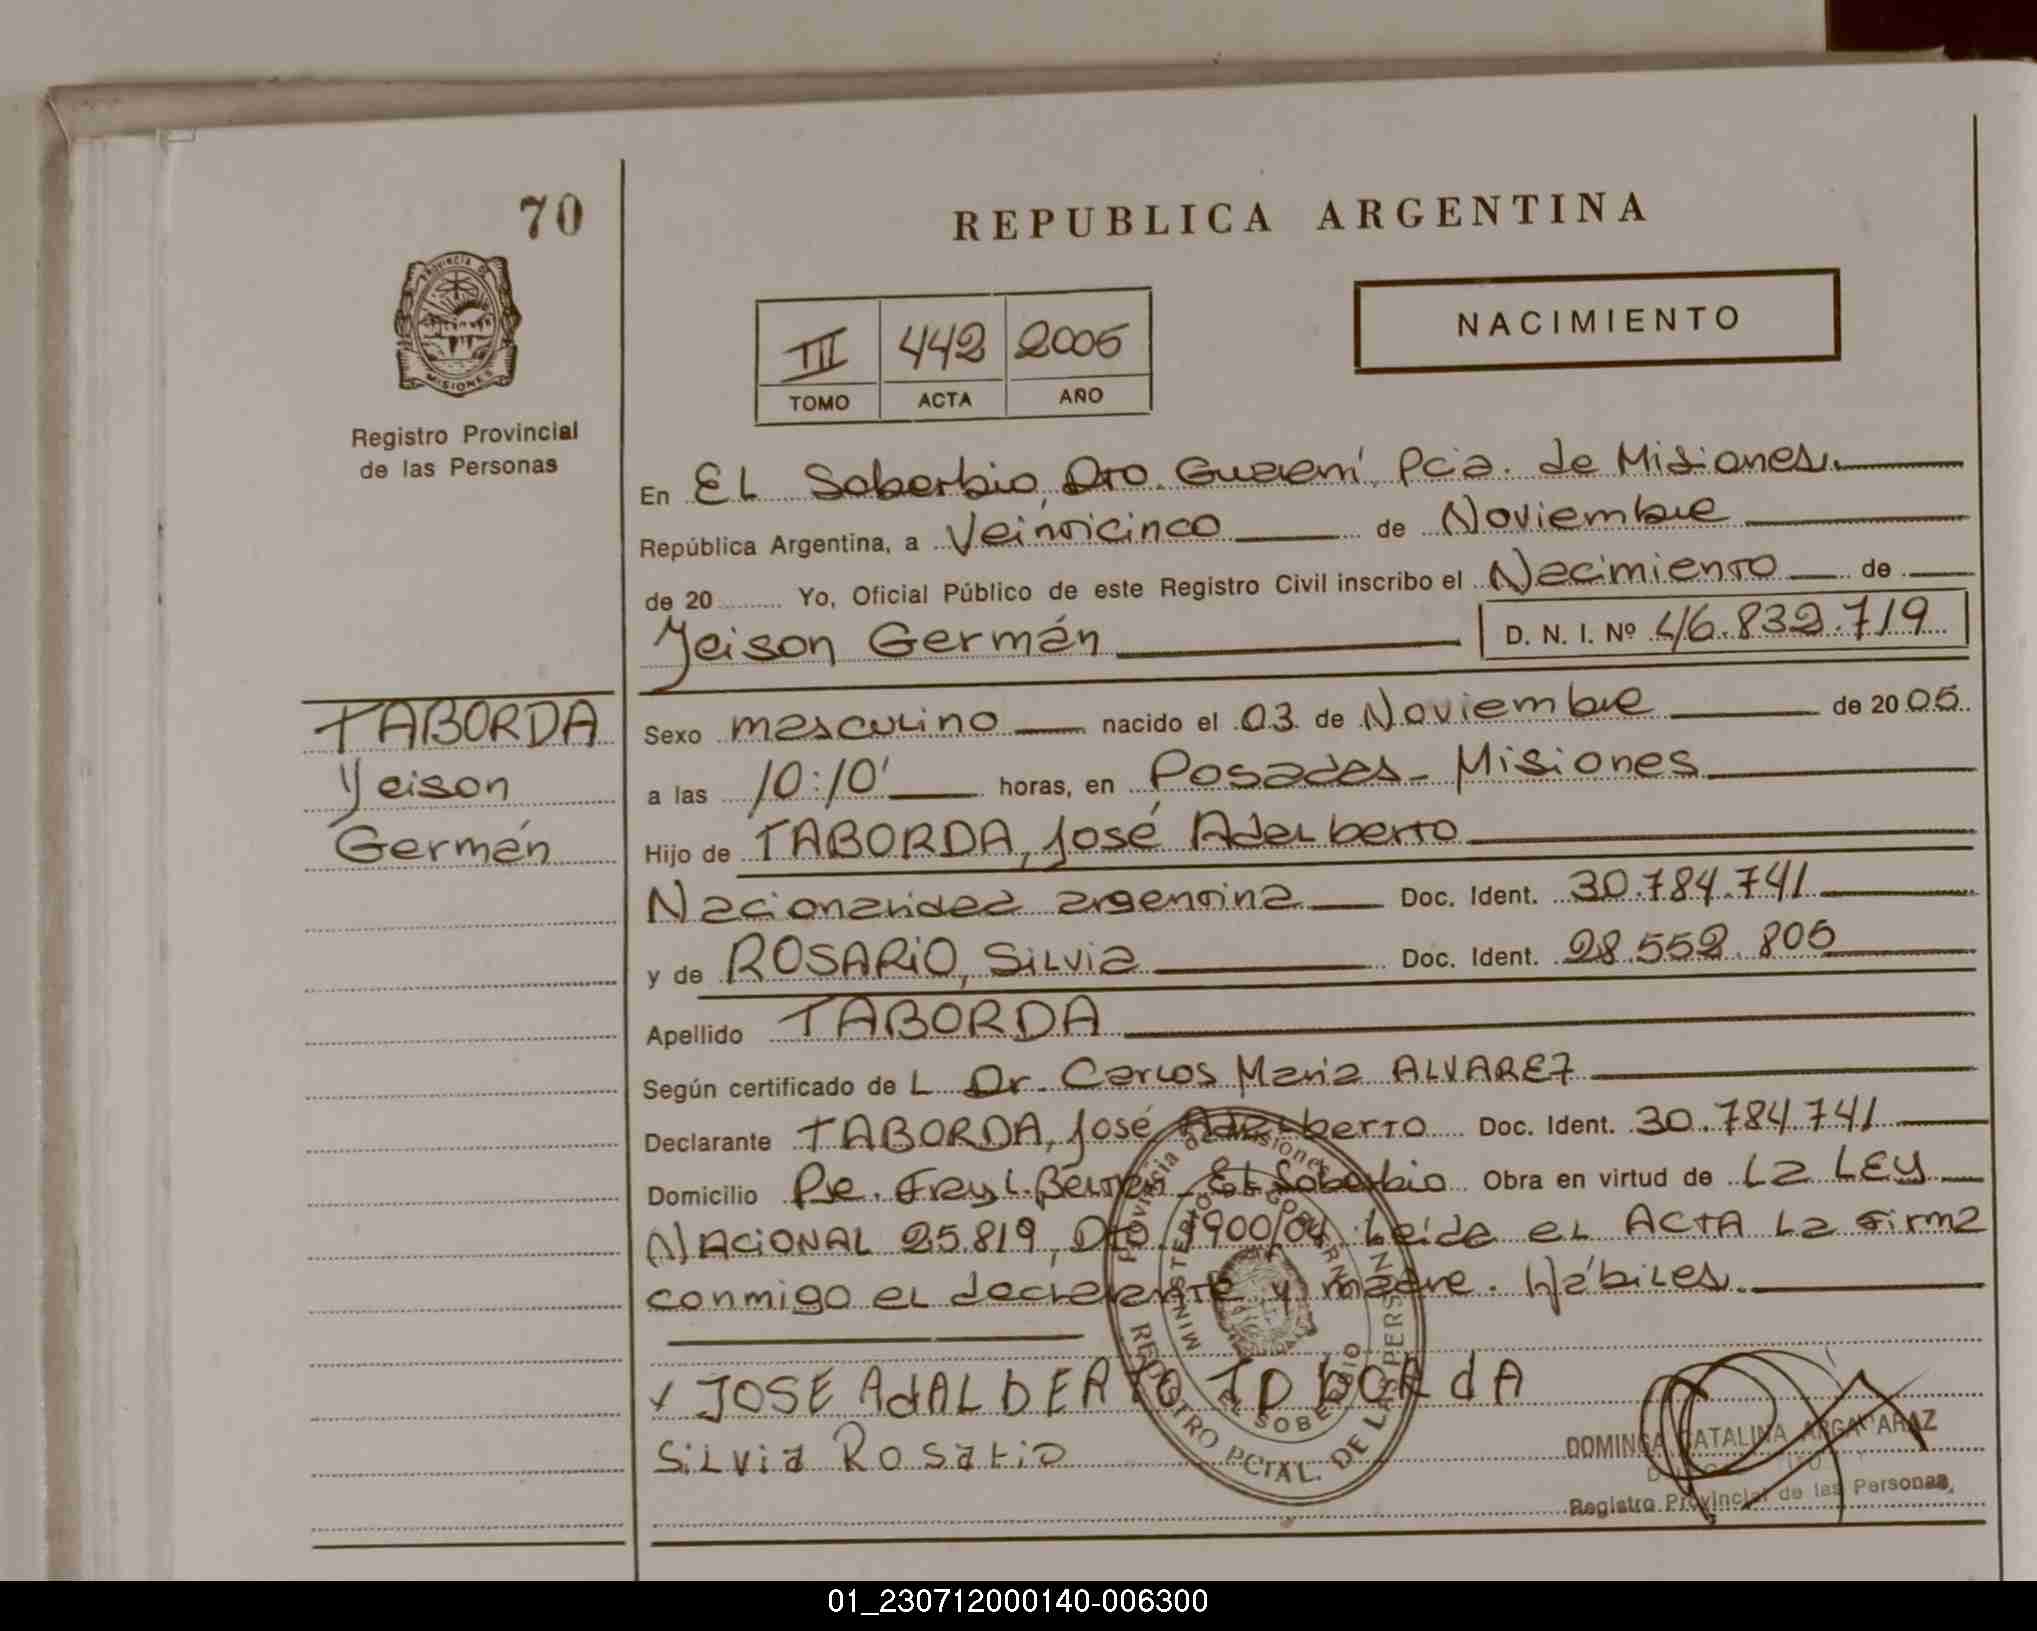 70
REPUBLICA ARGENTINA
PROVINCIA DE
MISIONES
Registro Provincial
de las Personas
NACIMIENTO
III 442 2005
TOMO ACTA AÑO
En EL Soberbio, Dto. Guaraní, Pcia. de Misiones.
República Argentina, a Veinticinco de Noviembre
de 20 Yo, Oficial Público de este Registro Civil inscribo el Nacimiento de
Yeison Germán D. N. I. Nº 46.832.719
TABORDA
Yeison
Germán
Sexo masculino nacido el 03 de Noviembre de 2005.
a las 10:10' horas, en Posadas - Misiones
Hijo de TABORDA, José Adelberto
Nacionalidad argentina Doc. Ident. 30.784.741
y de ROSARIO, Silvia Doc. Ident. 28.552.805
Apellido TABORDA
Según certificado de L Dr. Carlos Maria ALVAREZ
Declarante TABORDA, José Adelberto Doc. Ident. 30.784.741
Domicilio Pje. Fray L. Beltrán - El Soberbio Obra en virtud de La LEY
NACIONAL 25.819, Dto. 1900/04. Leída el ACTA La firma
conmigo el declarante y madre. Hábiles.
x JOSE AdALBERTO TABORdA
Silvia Rosario
Provincia de Misiones
MINISTERIO DE GOBIERNO
EL SOBERBIO
REGISTRO PCIAL. DE LAS PERSONAS
DOMINGA CATALINA
Registro Provincial de las Personas
01_230712000140-006300